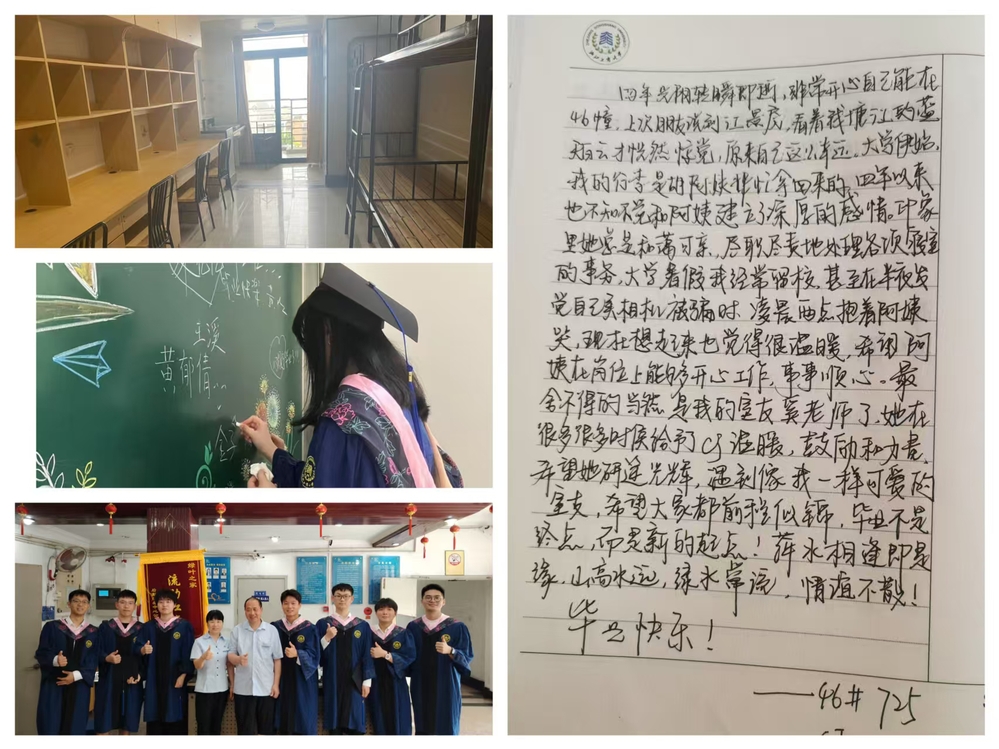 王溪
黄郁倩...
绿叶之家
流动红
四年光阴转瞬即逝,非常开心自己能在
46幢,上次朋友谈到江景房,看着钱塘江的蓝
天白云才恍然惊觉,原来自己这么幸运。大学伊始,
我的行李是胡阿姨帮忙拿回来的,四年以来
也不知不觉和阿姨建立了深厚的感情。印象
里她总是和蔼可亲,尽职尽责地处理各项寝室
的事务,大学暑假我经常留校,甚至在半夜发
觉自己买相机被骗时 凌晨两点抱着阿姨
哭,现在想起来也觉得很温暖,希望阿
姨在岗位上能够开心工作,事事顺心。最
舍不得的当然是我的室友奚老师了,她在
很多很多时候给予了cj温暖,鼓励和力量,
希望她研途光辉,遇到像我一样可爱的
室友,希望大家都前程似锦,毕业不是
终点,而是新的起点!萍水相逢即是
缘,山高水远,绿水常流,情谊不散!
毕业快乐!
——46# 725